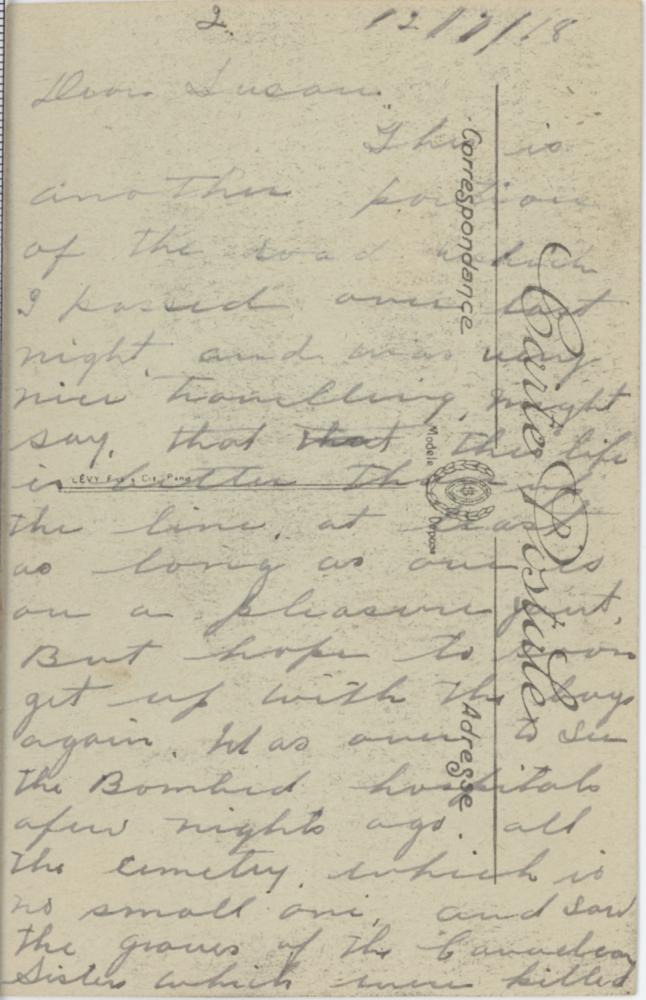 2.
12/7/18
Dear Susan.
This is
another portion
of the road which
I passed over last
night, and was very
nice travelling, might
say, that that this life
is better than in
the line, at least
as long as one is
on a pleasure
But hope to soon
get up with the boys
again. Was over to see
the Bombed hospitals
afew nights ago. all
the cemetry, which is
no small one, and saw
the graves of the Canadian
Sisters which were killed
Correspondance
Carte Postale
Adresse
Modèle Déposé
LÉVY Fils & Cie, Paris